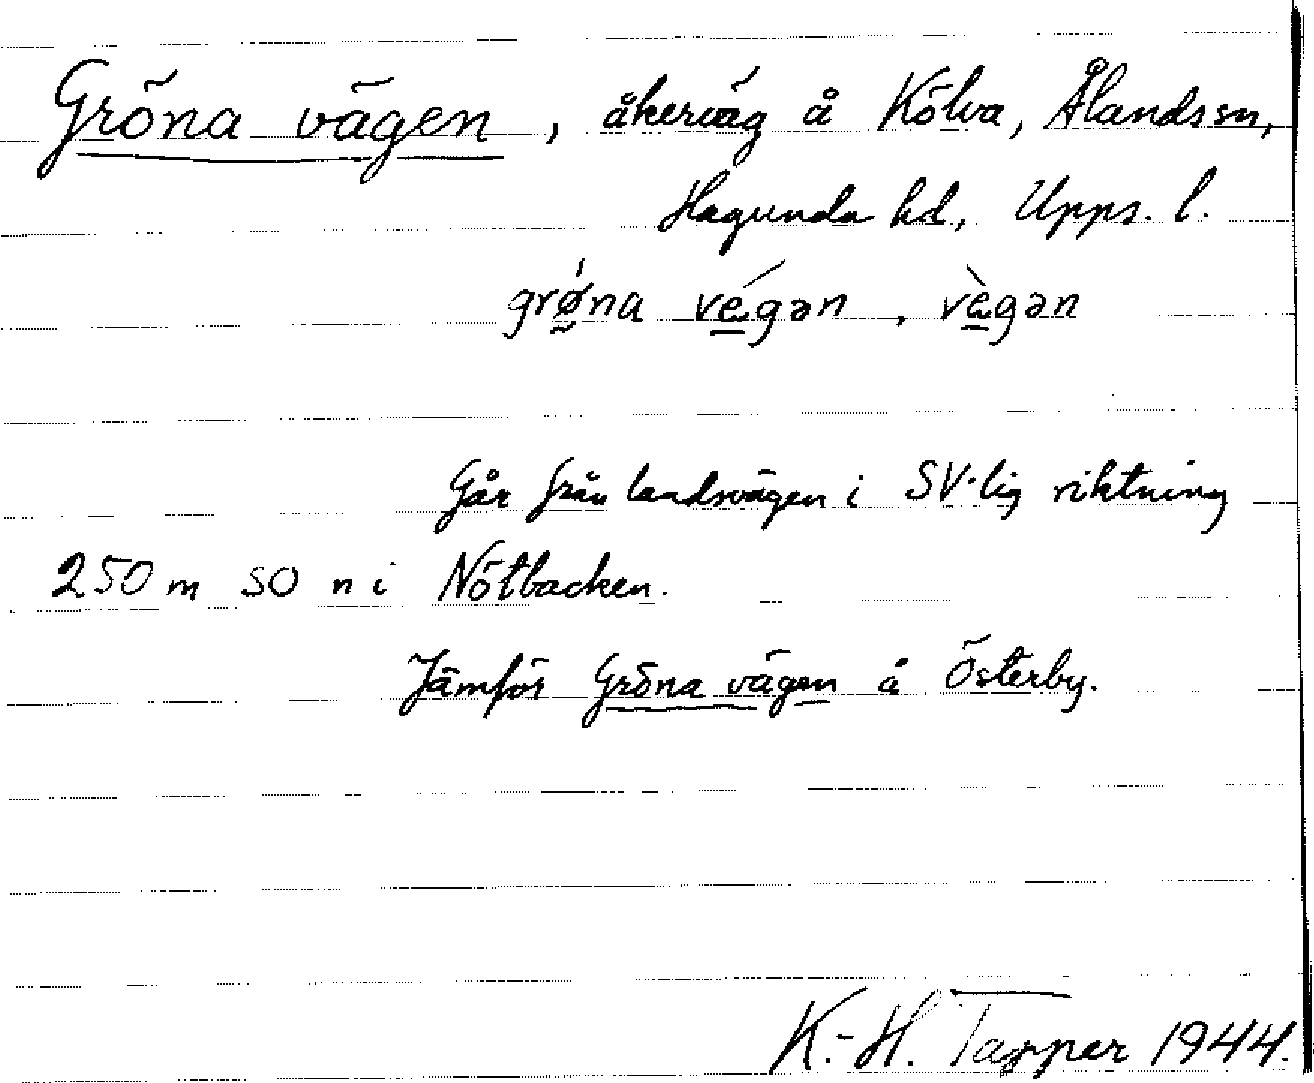 Gröna vägen, åkerväg å Kölva, Ålands sn,
Hagunda hd, Upps. l.
grǿ̱na vé̱gən, vè̱gən
Går från landsvägen i SV-lig riktning
250 m SO n i Nötbacken.
Jämför Gröna vägen å Österby.
K.-H. Tapper 1944.